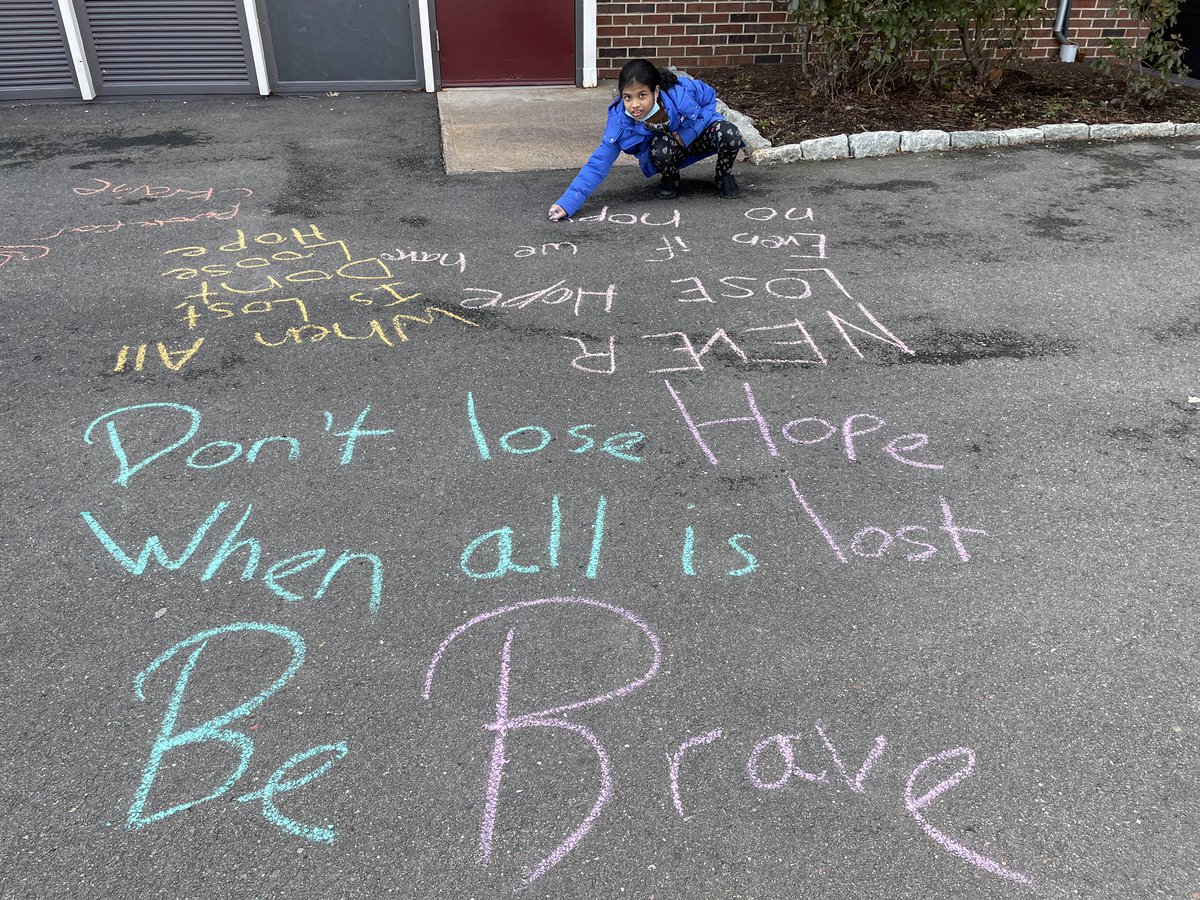 Don't lose Hope
When all is lost
Be Brave
NEVER
LOSE Hope
Even if we have
no hop
When All
Is Lost
Dont
Loose
Hope